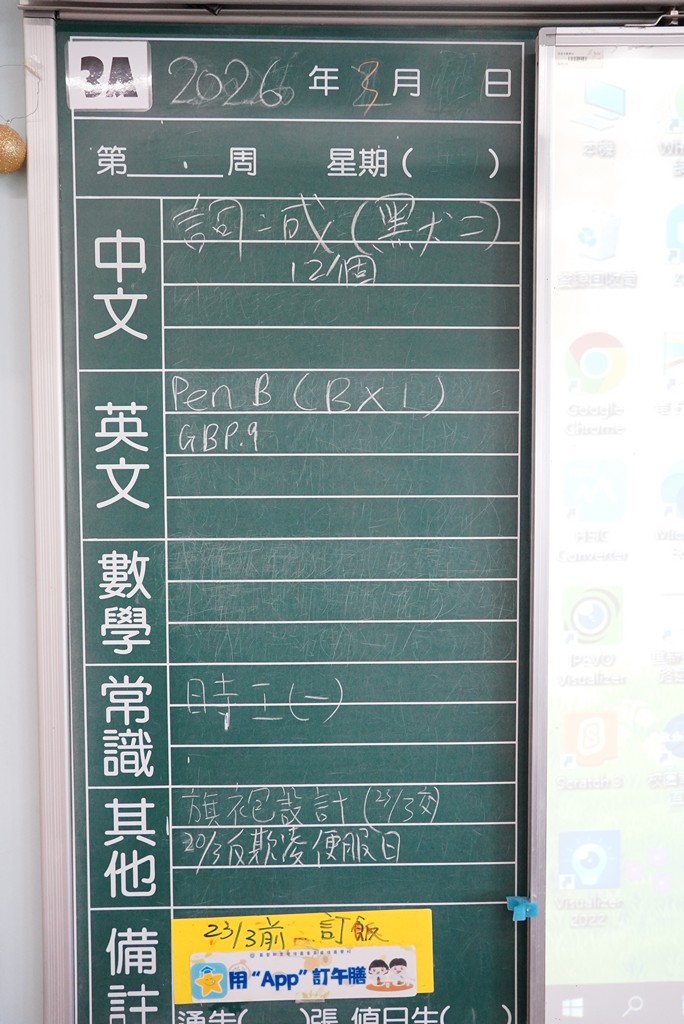 3A 2026 年 3 月 日
第 周 星期( )
中文
詞:成(黑犬二)
12個
英文
Pen B (B×1)
GBP.9
數學
常識
時工(一)
其他
旗袍設計(23/3交)
20/3反欺凌便服日
備註
23/3前 訂飯
用“App”訂午膳
通告( )張 值日生(
本機
Google
Chrome
Converter
IPEVO
Visualizer
Scratch 3
Visualizer
2022